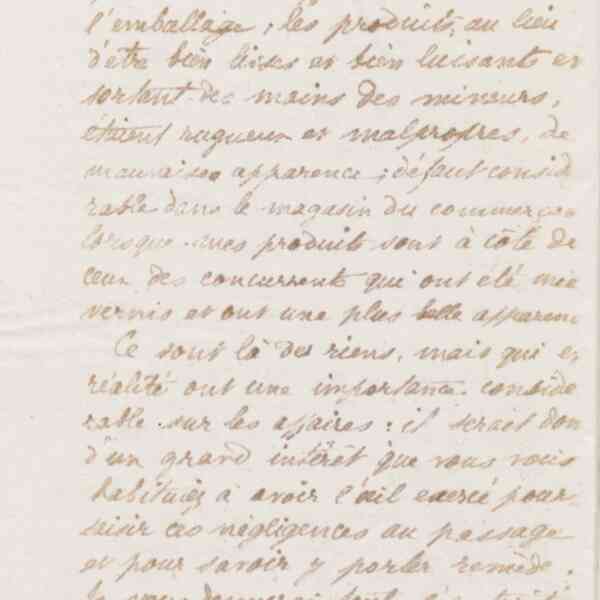 l'emballage ; les produits, au lieu
d'être bien lisses et bien luisants en
sortant des mains des mineurs,
étaient rugueux et malpropres, de
mauvaise apparence ; défaut consid
rable dans le magasin du commerçan
lorsque mes produits sont à côté de
ceux des concurrents qui ont été mie
vernis et ont une plus belle apparenc
Ce sont là des riens, mais qui en
réalité ont une importance conside
rable sur les affaires : il serait don
d'un grand intérêt que vous vous
habituiez à avoir l'œil exercé pour
saisir ces négligences au passage
et pour savoir y porter remède.